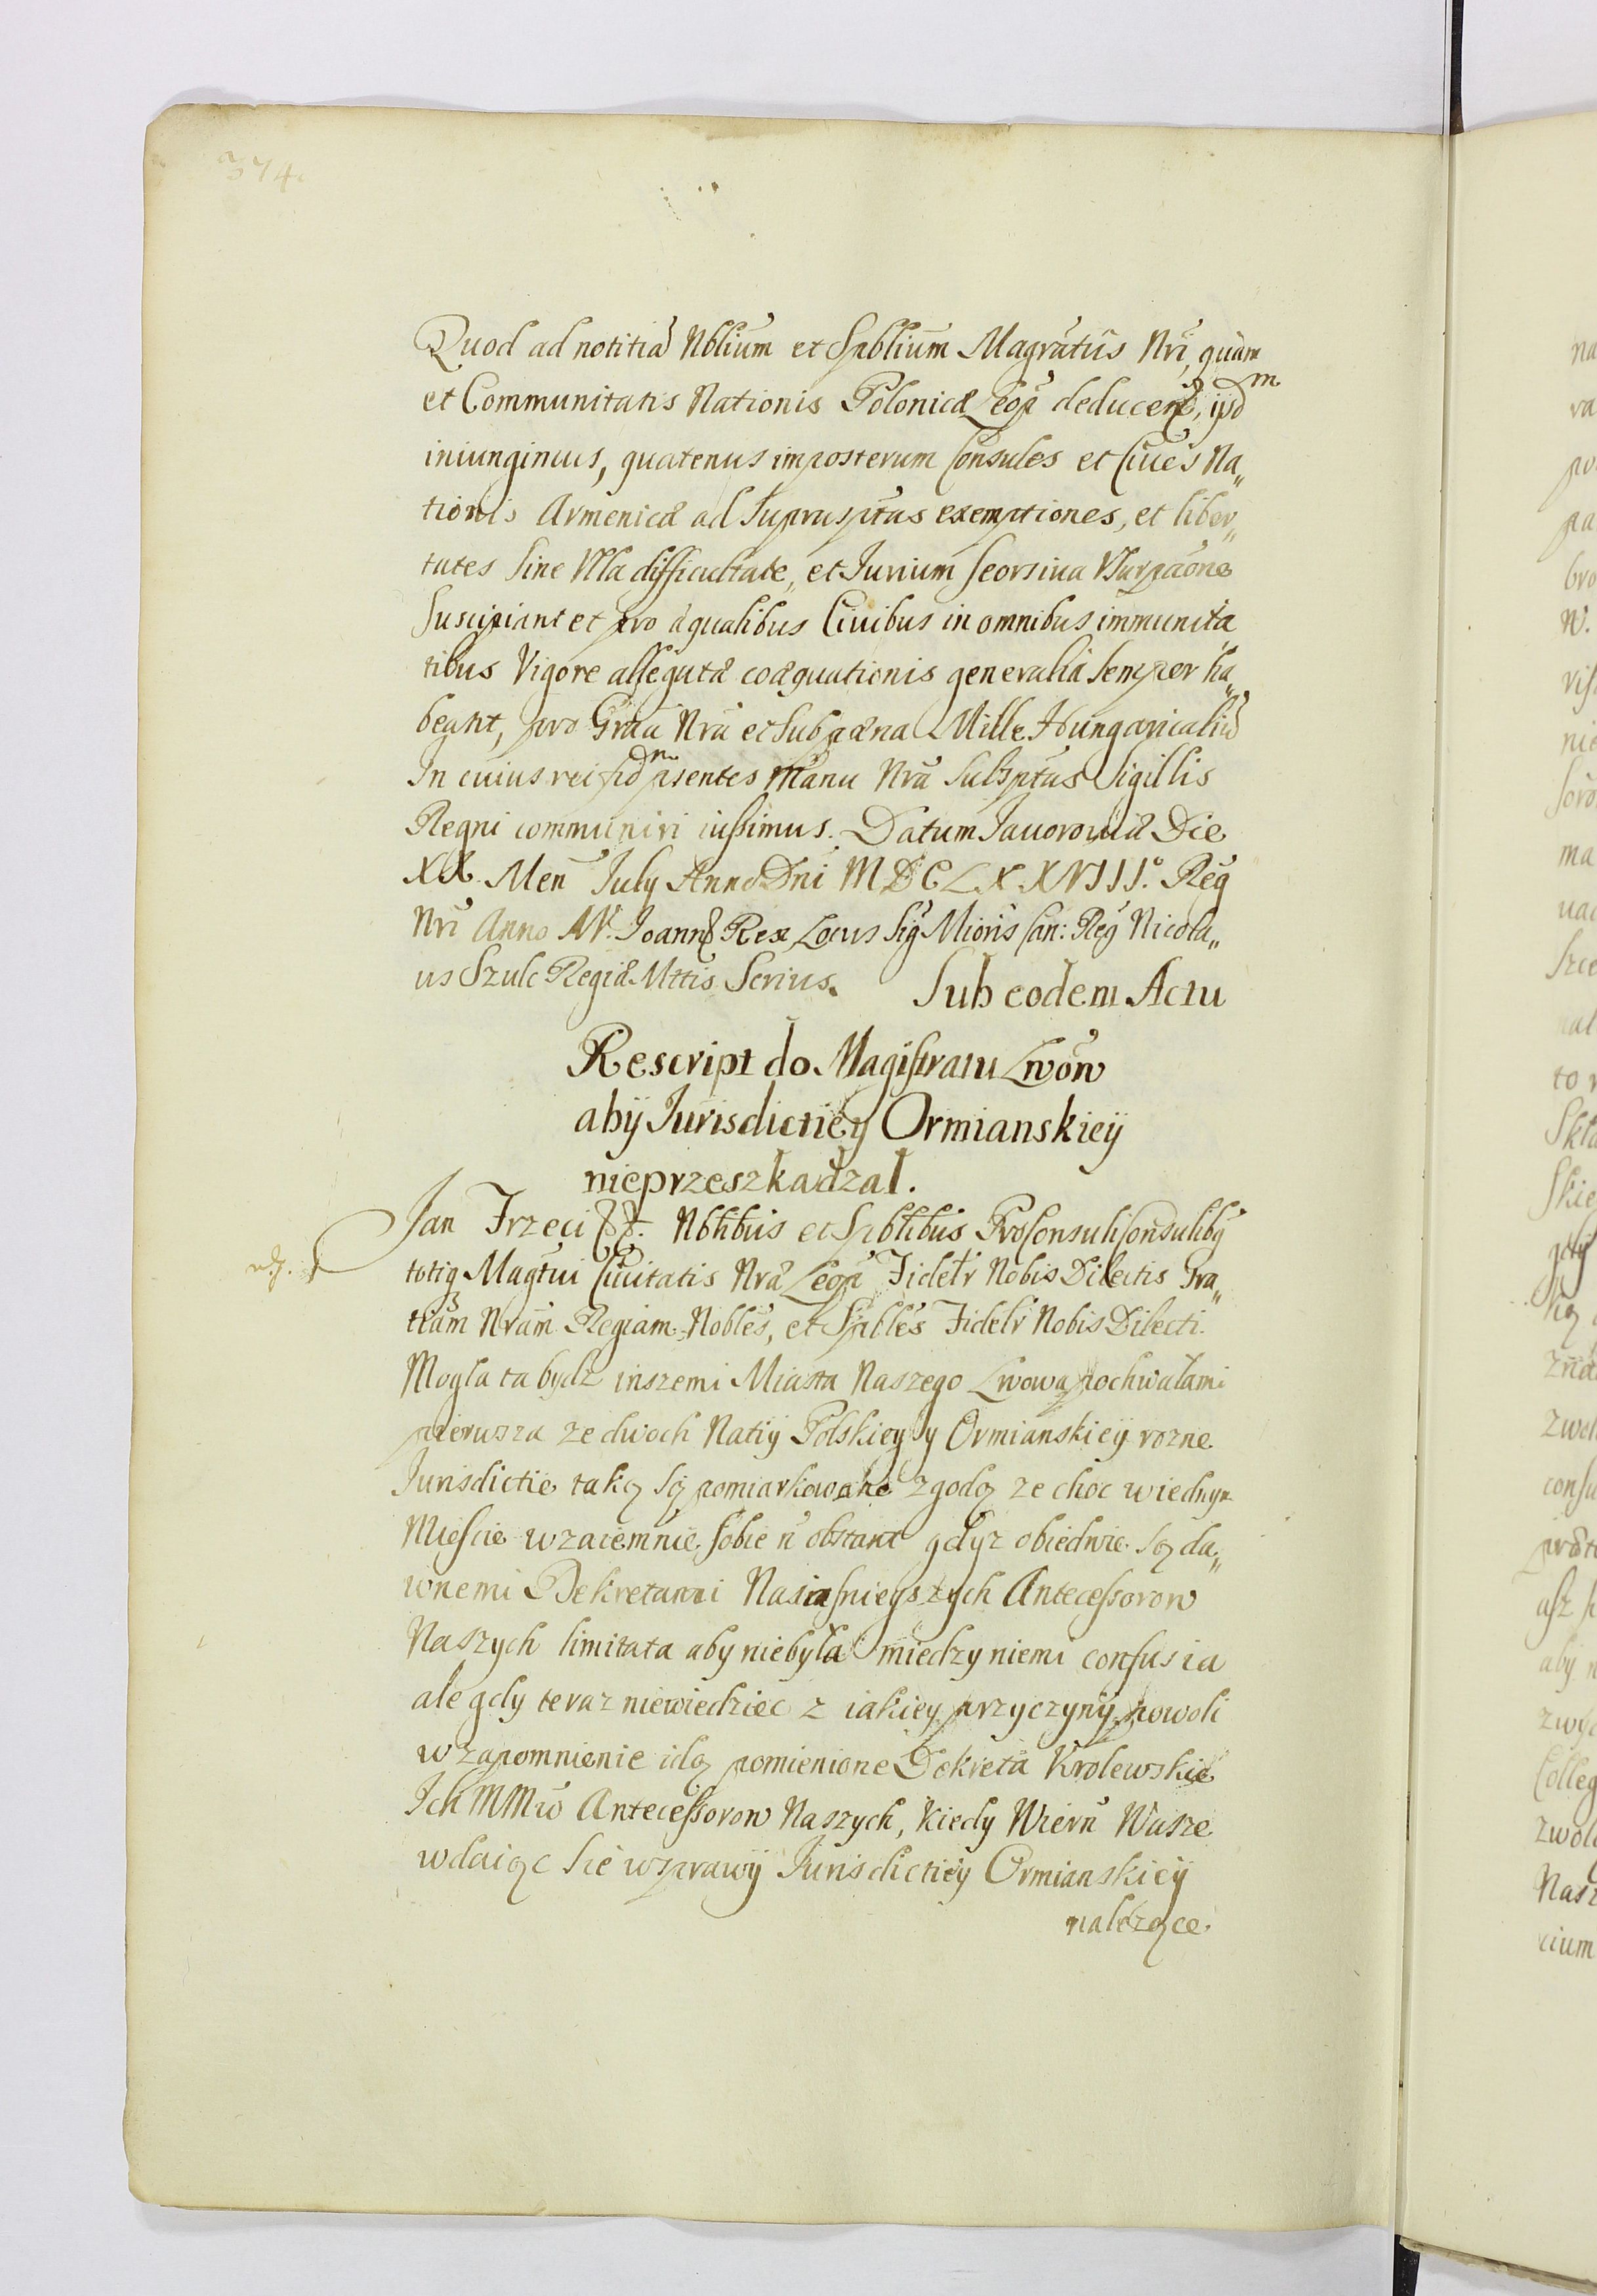 374.
Quod ad notitiã Nblium et Spblium Magratus Nri, quam
et Communitatis Nationis Polonicæ Leop deducen, ijsdm
iniungimus, quatenus imposterum Consules et Ciues Na„
tionis Armenicæ ad suprasptas exemptiones, et liber„
tates sine Vlla difficultate, et Jurium seorsiua Vsurpaone
suscipiant et pro æqualibus Ciuibus in omnibus immunita
tibus Vigore allegatæ coæquationis generalia semper ha„
beant, pro Gratia Nra et sub pæna Mille Hungaricaliũ
In cuius rei fidm psentes Manu Nra subsptas Sigillis
Regni communiri iussimus. Datum Jauorouiæ Die
XX. Men July Anno Dni MDCLXXVIII.o Reg
Nri Anno IV. Joannes Rex Locus Sig Mioris Can: Reg Nicola„
us Szulc Regiæ Mttis Scrius. Sub eodem Actu
Rescript do Magistratu Lwow
aby Jurisdictiey Ormianskiey
nieprzeszkadzal.
Jan Trzeci &&. Nbhbus et Spblibus ProConsuli Consulibq
totiq Magtui Ciuitatis Nræ Leop Fidelr Nobis Dilectis Gra„
tiam Nram Regiam. Nobles, et Spbles Fidelr Nobis Dilecti.
Mogła ta bydz inszemi Miasta Naszego Lwowa pochwałami
pierwsza ze dwoch Natiy Polskiey y Ormianskiey rozne
Jurisdictie taką są pomiarkowane zgodą ze choc wiednym
Miescie wzaiemnie sobie ñ obstant gdyz obiedwie są da„
wnemi Dekretami Nasiasnieyszych Antecessorow
Naszych limitata aby niebyła miedzy niemi confusia
ale gdy teraz niewiedziec z iakiey przyczyny powoli
wzapomnienie idą pomienione Dekreta Krolewskie
Ich MMw Antecessorow Naszych, kiedy Wiern Wasze
wdaiąc sie wsprawy Jurisdictiey Ormianskiey
nalezące